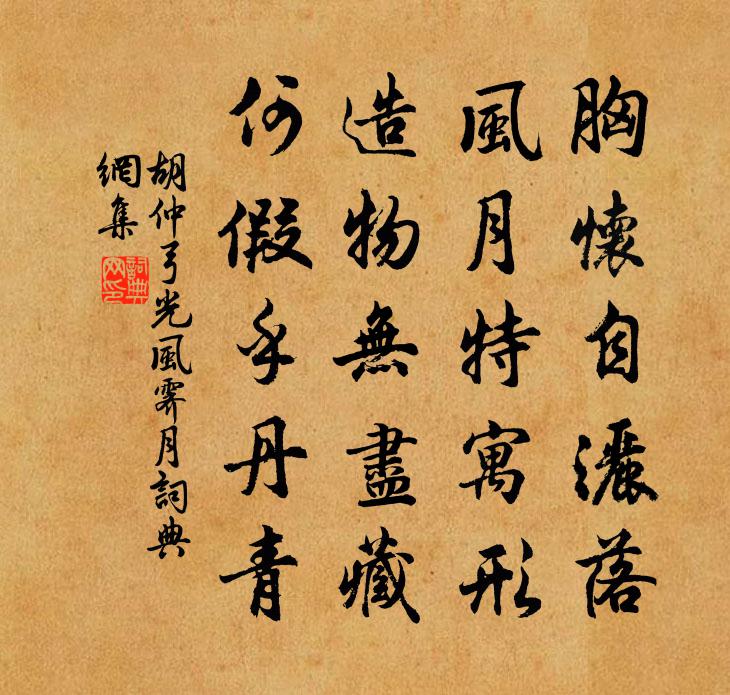 胸懷自灑落
風月特寓形
造物無盡藏
何假手丹青
胡仲弓光風霽月詞典
網集
詞典
网印